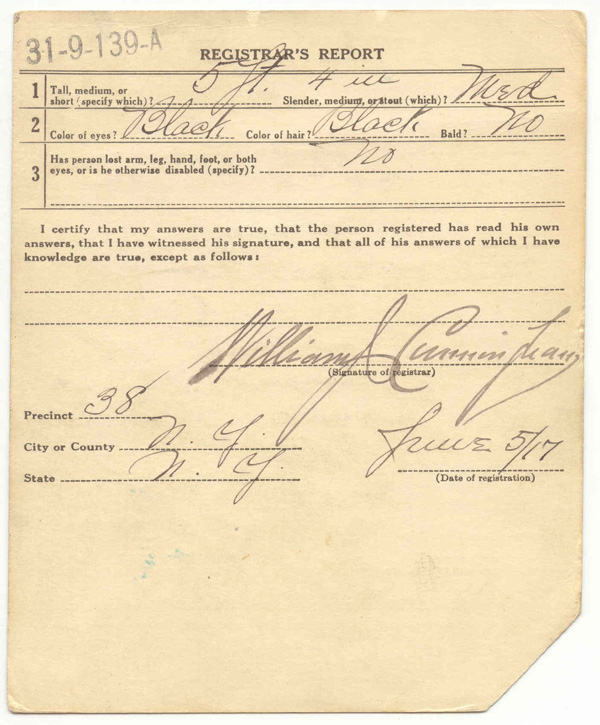 31-9-139-A
REGISTRAR'S REPORT
1 Tall, medium, or short (specify which)? 5 ft. 4 in Slender, medium, or stout (which)? Med
2 Color of eyes? Black Color of hair? Black Bald? No
3 Has person lost arm, leg, hand, foot, or both
eyes, or is he otherwise disabled (specify)? No
I certify that my answers are true, that the person registered has read his own
answers, that I have witnessed his signature, and that all of his answers of which I have
knowledge are true, except as follows:
William J Cunningham
(Signature of registrar)
Precinct 38
City or County N. Y.
State N. Y.
June 5/17
(Date of registration)